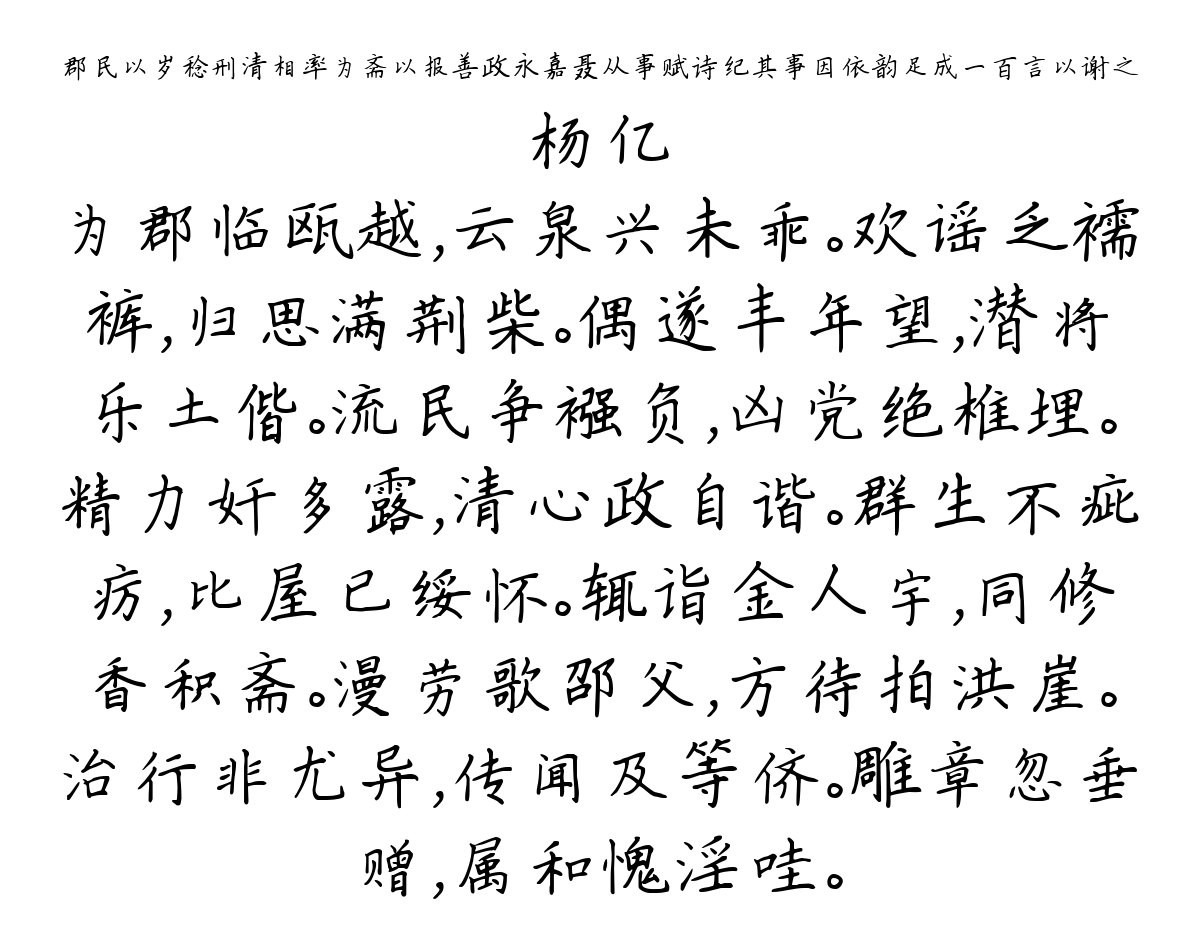 郡民以岁稔刑清相率为斋以报善政永嘉聂从事赋诗纪其事因依韵足成一百言以谢之
杨亿
为郡临瓯越,云泉兴未乖。欢谣乏襦
裤,归思满荆柴。偶遂丰年望,潜将
乐土偕。流民争襁负,凶党绝椎埋。
精力奸多露,清心政自谐。群生不疵
疠,比屋已绥怀。辄诣金人宇,同修
香积斋。漫劳歌邵父,方待拍洪崖。
治行非尤异,传闻及等侪。雕章忽垂
赠,属和愧淫哇。